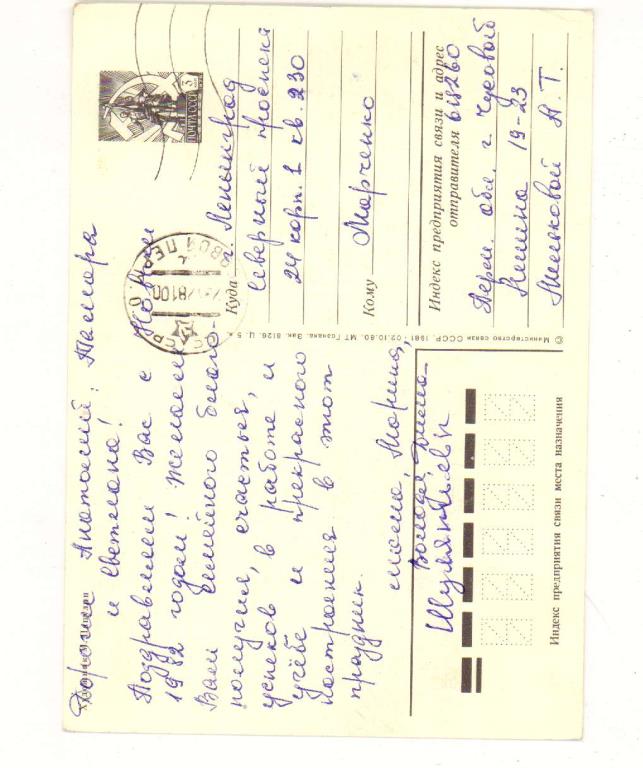 Дорогие Анатолий, Тамара
и Светлана!
Поздравляем Вас с Новым
1982 годом! Желаем
Вам семейного благо-
получия, счастья,
успехов в работе и
учёбе и прекрасного
настроения в этот
праздник.
мама, Марина,
Володя, Дима
ПОЧТА СССР 3
Куда г. Ленинград
Северный проспект
24 корп. 1 кв. 230
Кому Марченко
Индекс предприятия связи и адрес
отправителя 618260
Перм. обл. г. Чусовой
Ленина 19-23
А. Т.
© Министерство связи СССР, 1981 02.10.80. МТ Гознака. Зак. 8126. Ц. 5 к.
Индекс предприятия связи места назначения